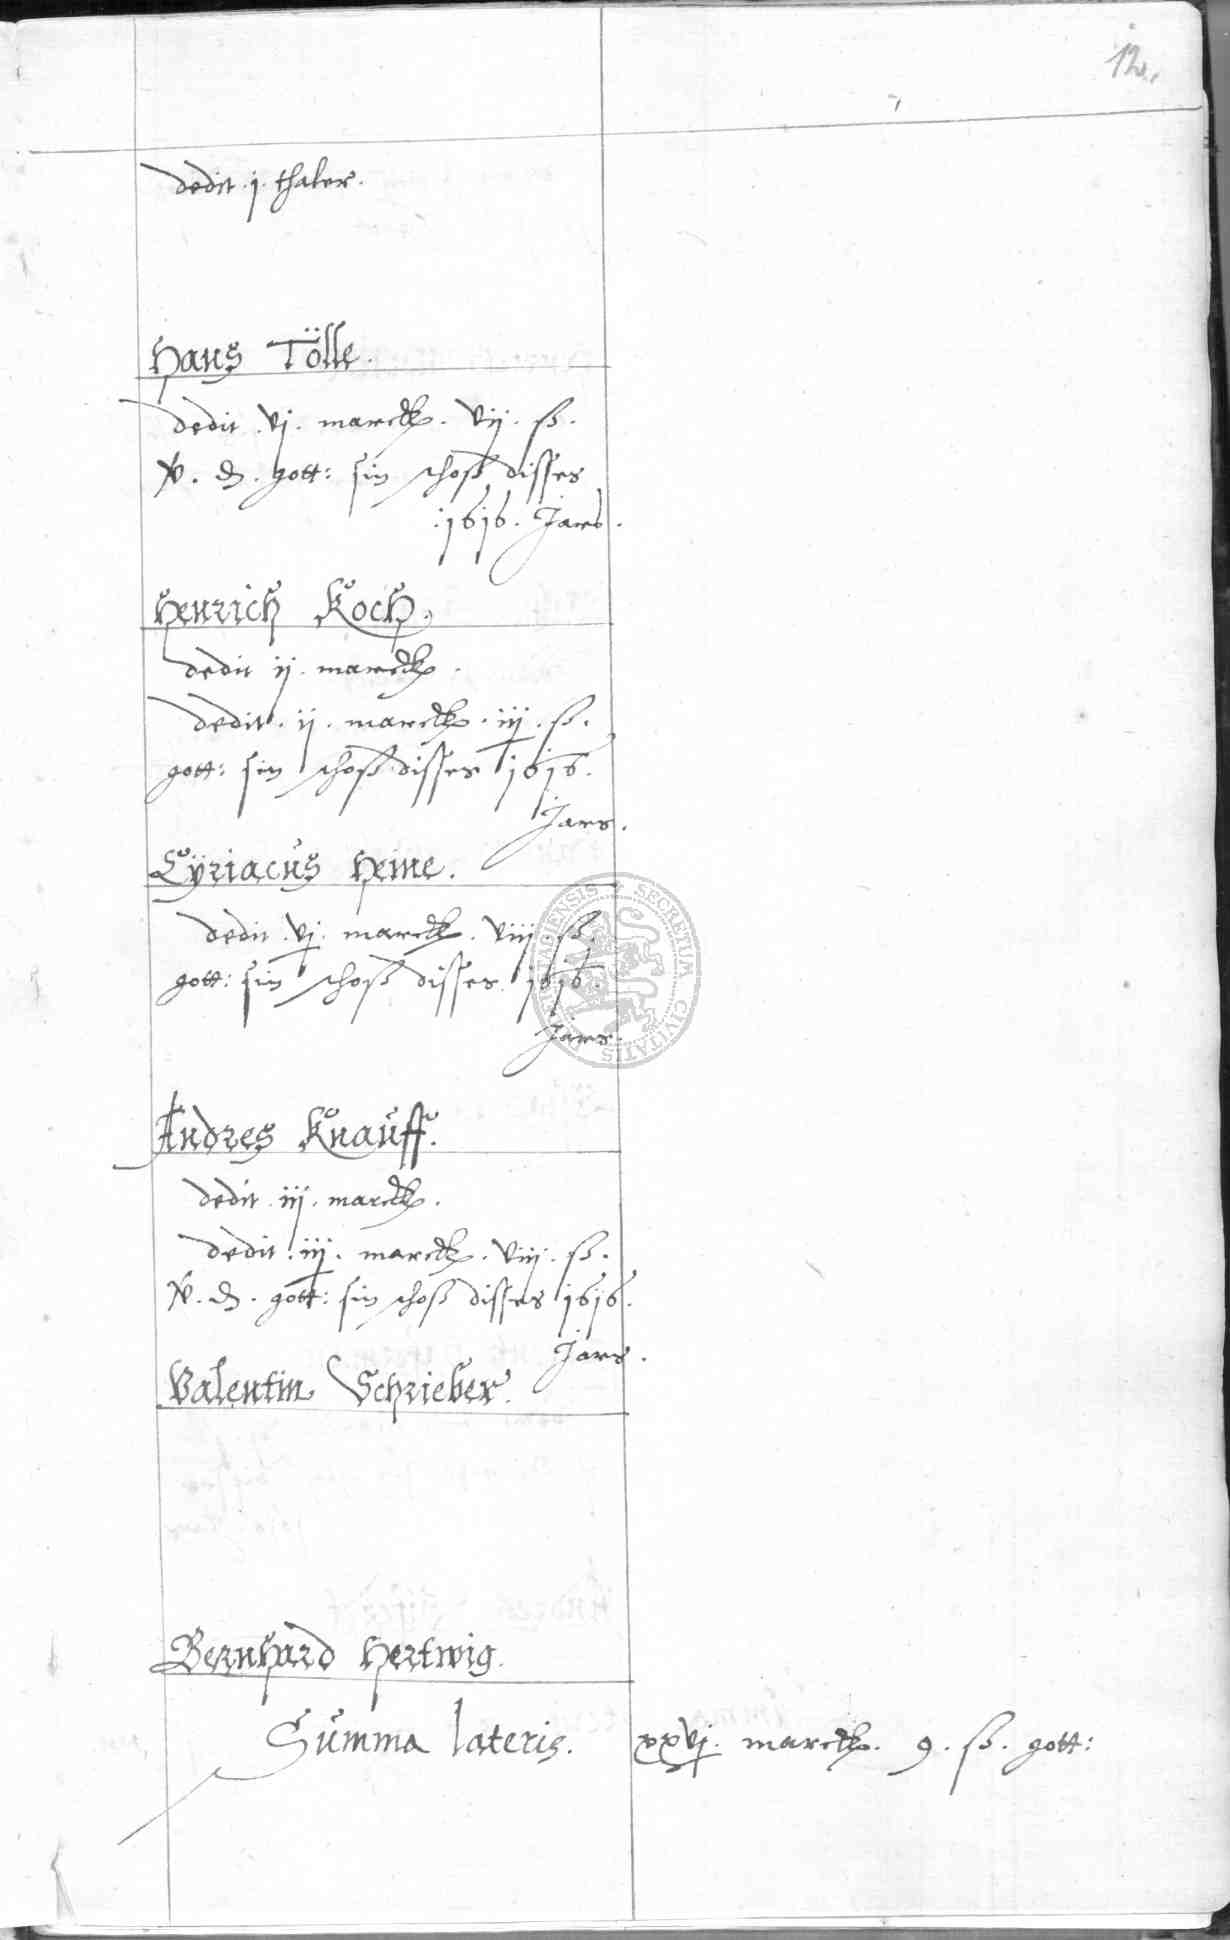 12.
dedit . j . thaler.
Hans Tölle.
dedit . vj . marck . vij . ß .
v . d . gott: sin schoß disses
. 1616 . Jars .
Henrich Koch.
dedit ij . marck .
dedit . ij . marck . iij . ß .
gott: sin schoß disses 1616 .
Jars .
Cÿriacus Heine.
dedit . vj . marck . viij . ß .
gott: sin schoß disses 1616 .
Jars .
Andres Knauff.
dedit . iij . marck .
dedit . iij . marck . viij . ß .
v . d . gott: sin schoß disses 1616 .
Jars .
Valentin Schrieber.
Bernhard Hertwig.
Summa lateris. xxvj . marck . 9 . ß . gott:
SECRETUM CIVITATIS